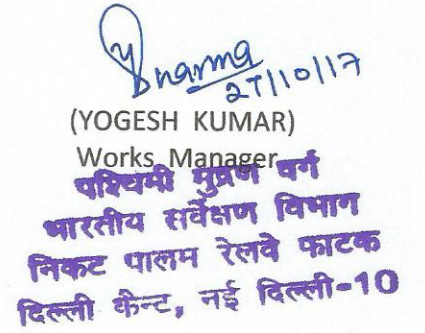 Sharma
27/10/17
(YOGESH KUMAR)
Works Manager
पश्चिमी मुद्रण वर्ग
भारतीय सर्वेक्षण विभाग
निकट पालम रेलवे फाटक
दिल्ली कैन्ट, नई दिल्ली-10